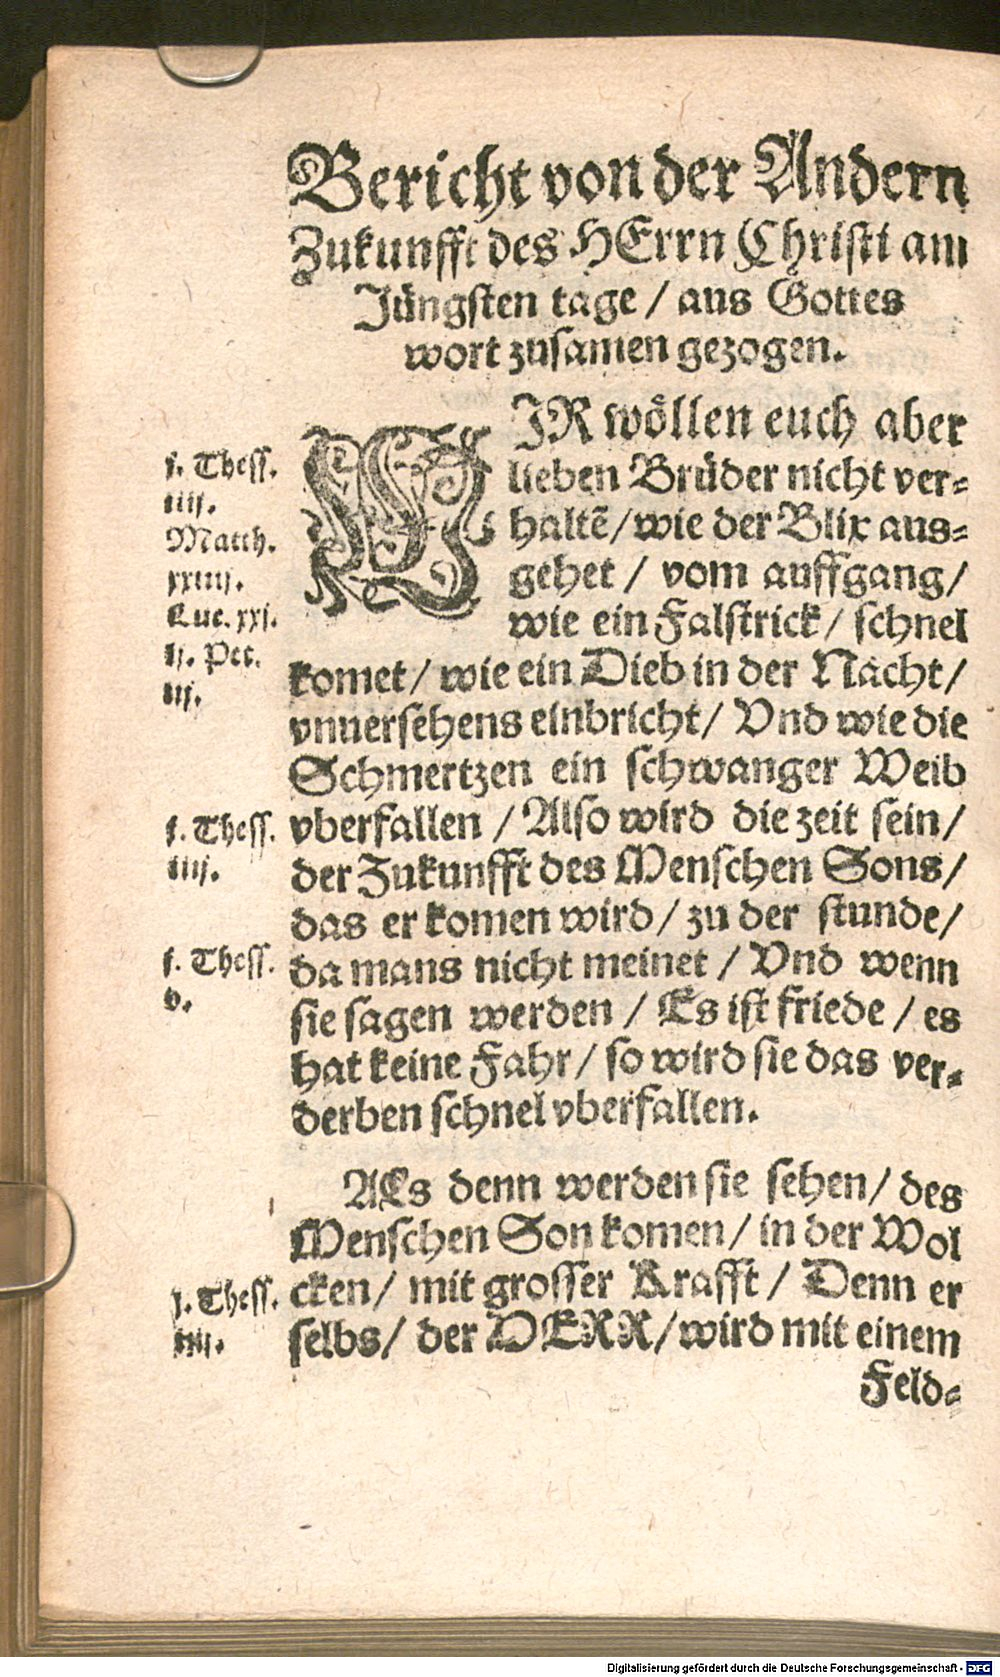 Bericht von der Andern
Zukunfft des HErrn Christi am
Jüngsten tage / aus Gottes
wort zusamen gezogen.
WJR wöllen euch aber
lieben Brüder nicht ver-
haltẽ / wie der Blix aus-
gehet / vom auffgang /
wie ein Falstrick / schnel
komet / wie ein Dieb in der Nacht /
vnuersehens einbricht / Vnd wie die
Schmertzen ein schwanger Weib
vberfallen / Also wird die zeit sein /
der Zukunfft des Menschen Sons /
das er komen wird / zu der stunde /
da mans nicht meinet / Vnd wenn
sie sagen werden / Es ist friede / es
hat keine Fahr / so wird sie das ver-
derben schnel vberfallen.
j. Thess.
iiij.
Matth.
xxiiij.
Luc. xxj.
ij. Pet.
iij.
j. Thess.
iiij.
j. Thess.
v.
ALs denn werden sie sehen / des
Menschen Son komen / in der Wol
cken / mit grosser Krafft / Denn er
selbs / der HERR / wird mit einem
Feld-
j. Thess.
iiij.
Digitalisierung gefördert durch die Deutsche Forschungsgemeinschaft - DFG